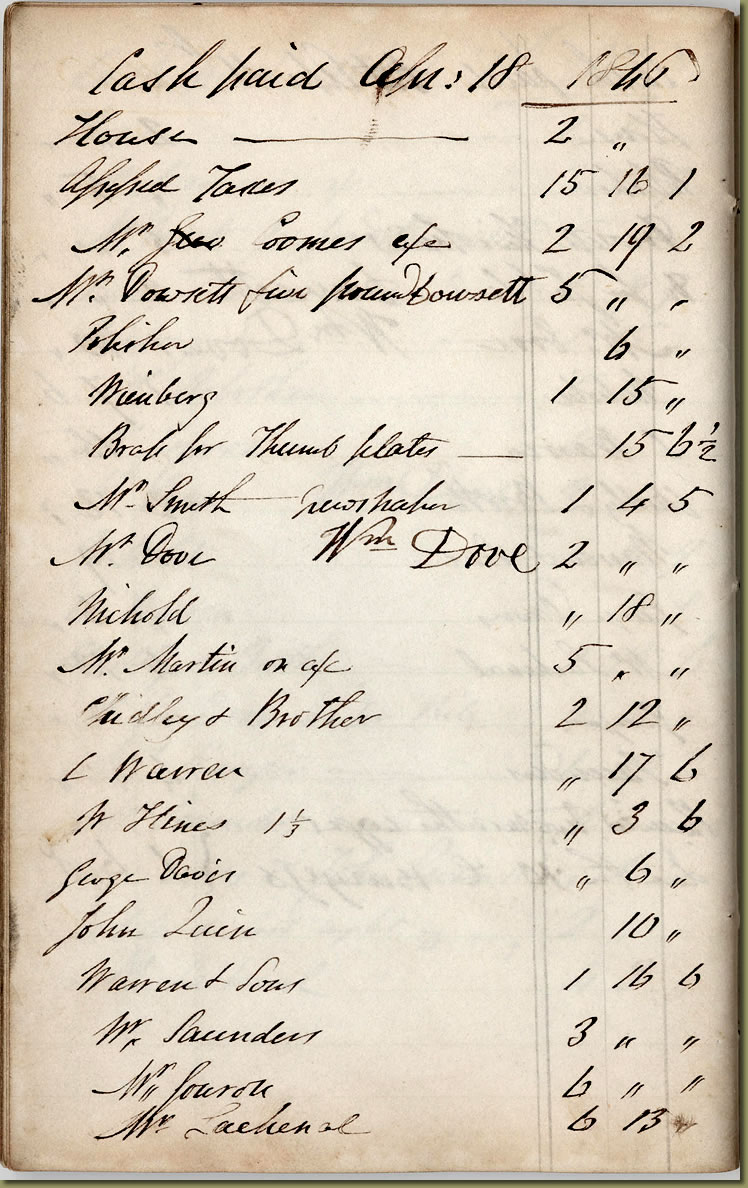 Cash paid Apr: 18 1846
House — 2 〃
Assessed Taxes 15 16 1
Mr. Geo Coomes a/c 2 19 2
Mr. Dowsett five pound Dowsett 5 〃 〃
Polisher 6 〃
Wienberg 1 15 〃
Brass for Thumb plates — 15 6½
Mr. Smith newspaper 1 4 5
Mr. Dove Wm Dove 2 〃 〃
Nichold 〃 18 〃
Mr. Martin on a/c 5 〃 〃
Chidley & Brother 2 12 〃
C Warren 〃 17 6
W Hines 1⅓ 〃 3 6
George Davis 〃 6 〃
John Quin 10 〃
Warren & Sons 1 16 6
Mr. Saunders 3 〃 〃
Mr. 6 〃 〃
Mr. Lachenal 6 13 〃